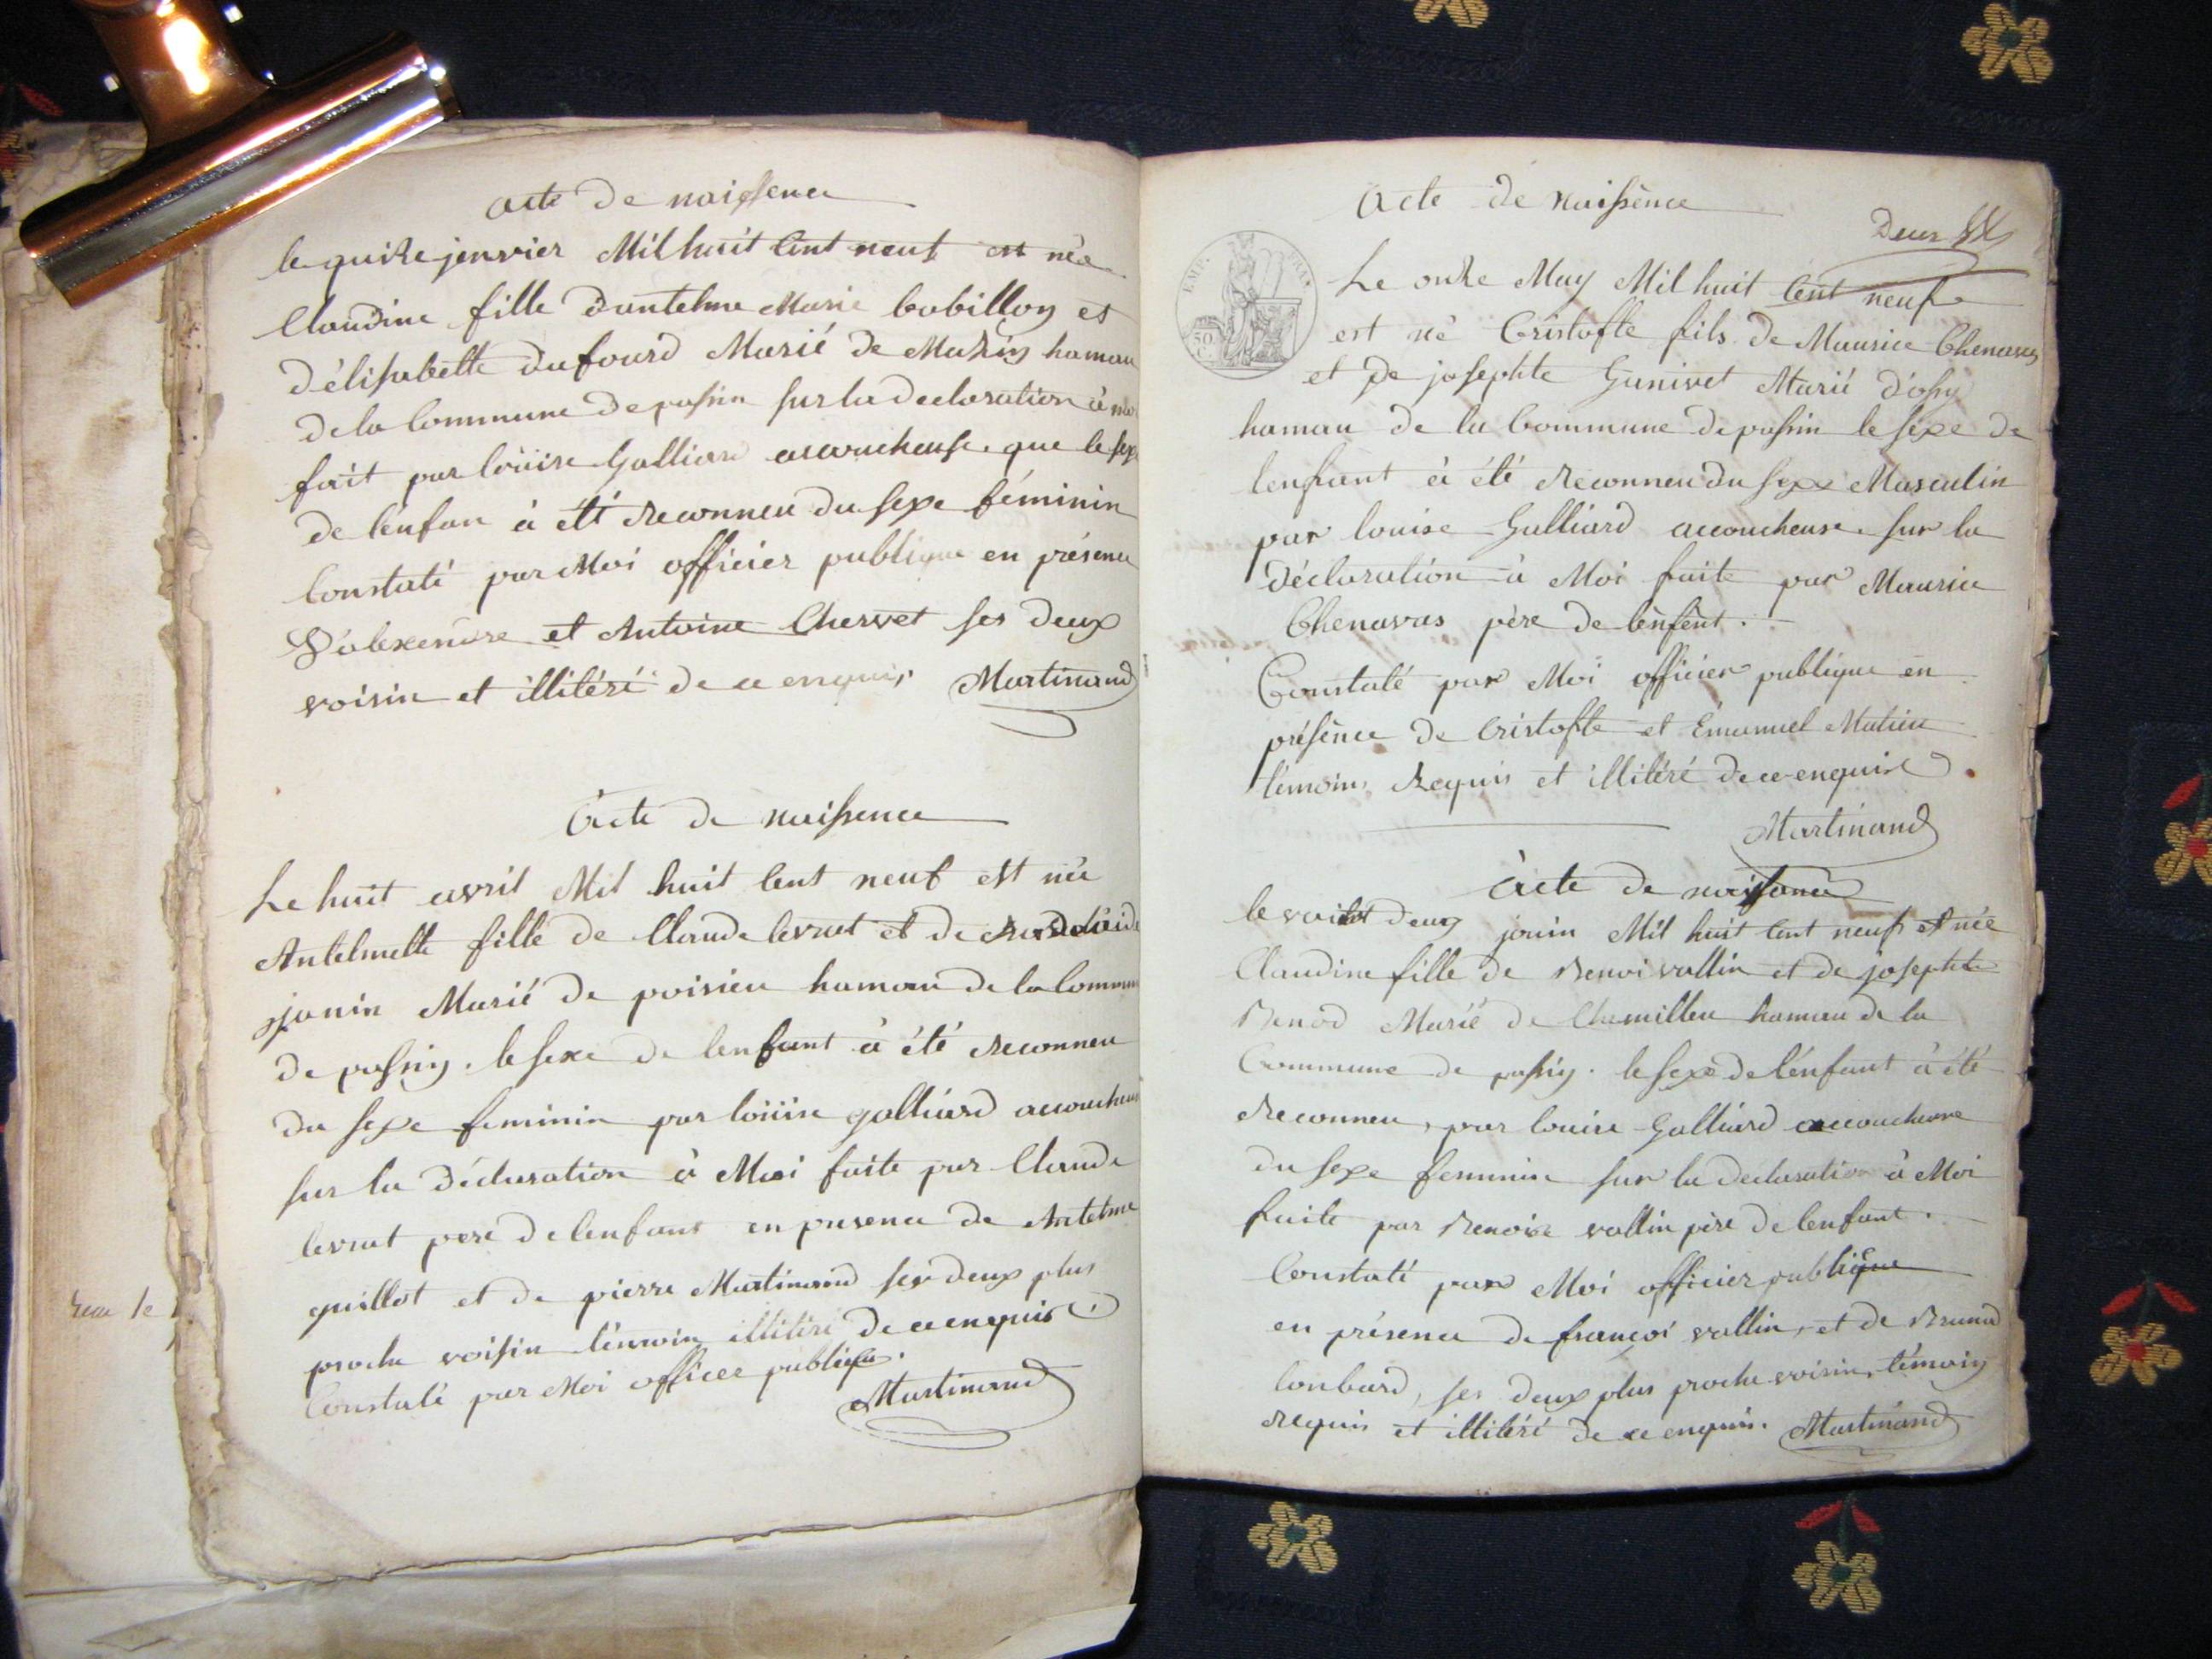 acte de naissence
le quise jenvier Mil huit Cent neuf est née
Claudine fille d'antelme Marie bobillon et
d'élisabette dufourd Marié de Mazin hamau
de la Commune de passin sur la declaration à moi
fait par loüise Galliard accoucheuse que le sexe
de lenfan à été Reconneu du sexe féminin
Constaté par Moi officier publique en présence
et Antoine Chervet ses deux
voisin et illitéré de ce enquis Martinand
Acte de naissence
Le huit avril Mil huit Cent neuf est née
Antelmette fille de Claude levrat et de
janin Marié de poisieu hamau de la Commune
de passin. le sexe de lenfant à été Reconneu
du sexe feminin par loüise galliard accoucheuse
sur la déclaration à Moi faite par Claude
levrat pere de lenfant en presence de Antelme
guillot et de pierre Martinand ses deux plus
proche voisin témoin illitéré de ce enquise
Constaté par Moi officer publique.
Martinand
reau 1e
Acte de naissènce
Deux
EMP. FRAN.
50 C.
Le onze May Mil huit Cent neuf
est né Cristofle fils de Maurice Chenavas
et de josephte Ganivet Marié d'ossy
hamau de la Commune de passin le sexe de
lenfant à été Reconneu du sexe Masculin
par louise Galliard accoucheuse. sur la
déclaration à Moi faite par Maurice
Chenavas père de lènfènt.
Constaté par Moi officier publique en
présènce de Cristofle et Émanuel Matieu
témoins Requis et illitéré de ce enquise.
Martinand
Acte de naissance
le vaint deux jouin Mil huit Cent neuf est née
Claudine fille de Benoi vallin et de josephte
Benod Marié de Chamilleu hamau de la
Commune de passin. le sexe de lénfant à été
Reconneu, par louise Galliard accoucheuse
du sexe feminin sur la declaration à Moi
faite par Benoise vallin père de lenfant.
Constaté par Moi officier publique
en présence de françoi vallin, et de Brunod
lonbard, ses deux plus proche voisin, témoin
Requis et illitéré de ce enquis. Martinand